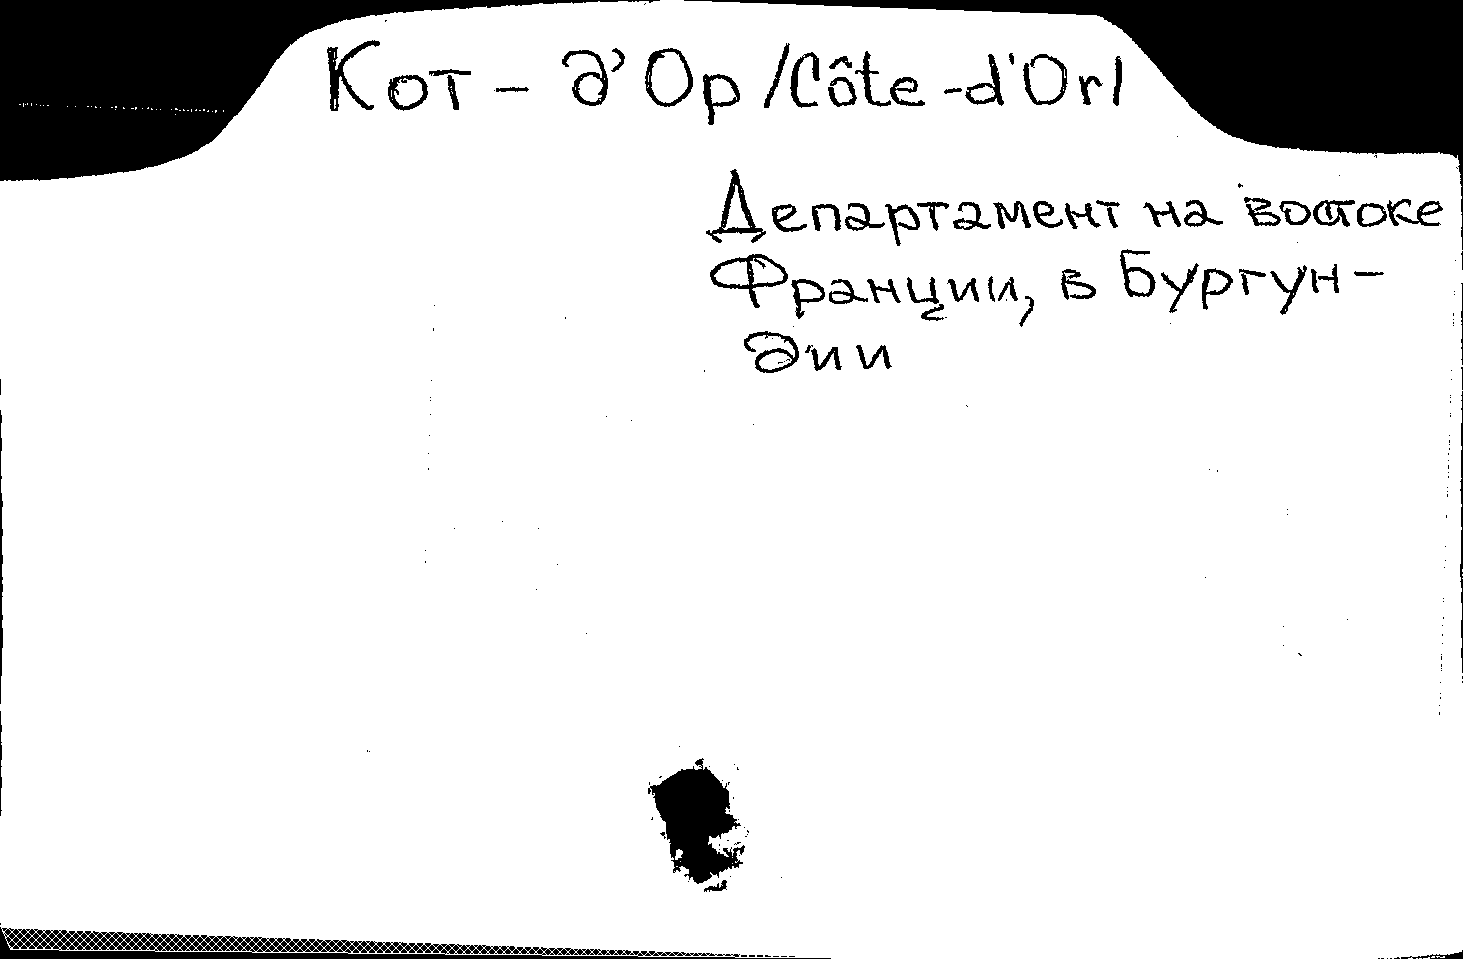 Кот - д'Ор /Côte-d'Or/
Департамент на востоке
Франции, в Бургун-
дии